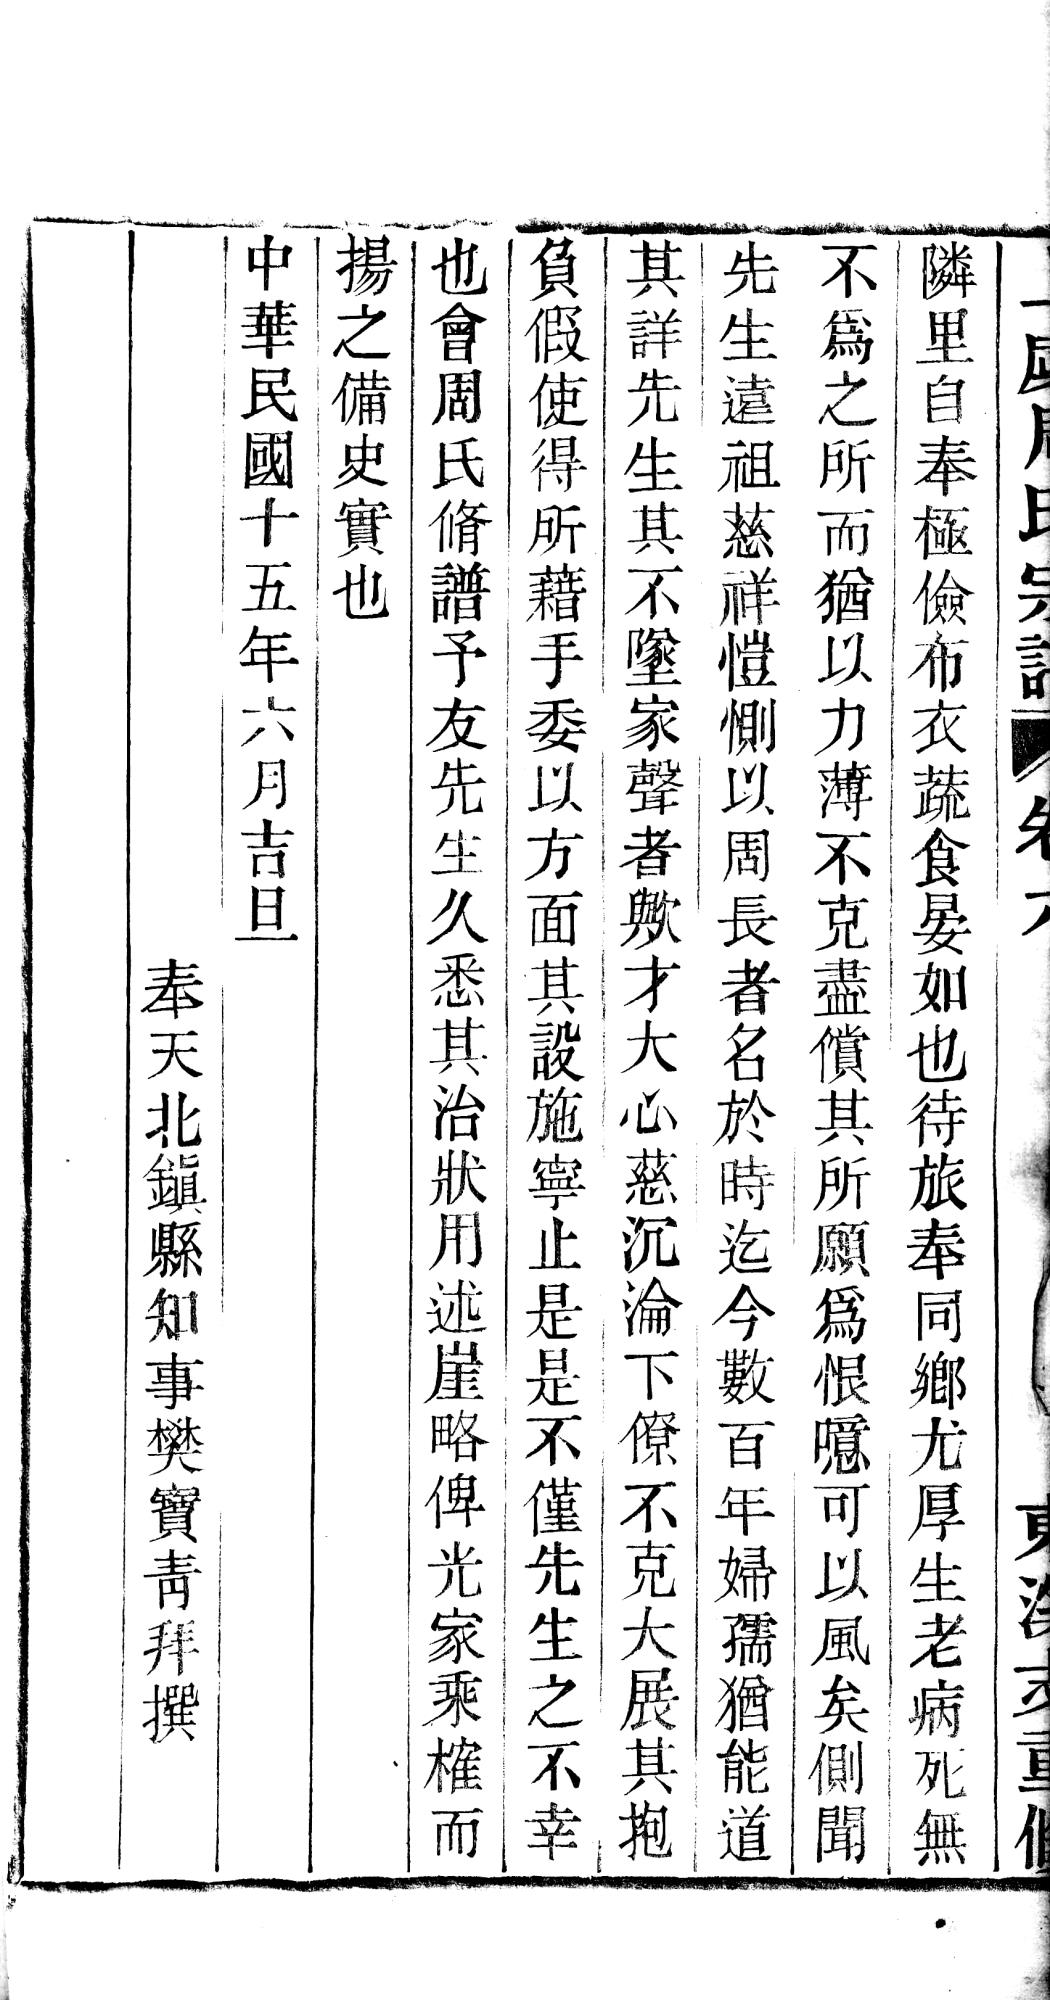 周氏宗譜 卷六
東梁支重修
隣里自奉極儉布衣蔬食晏如也待旅奉同鄉尤厚生老病死無
不爲之所而猶以力薄不克盡償其所願爲恨噫可以風矣側聞
先生遠祖慈祥愷惻以周長者名於時迄今數百年婦孺猶能道
其詳先生其不墜家聲者歟才大心慈沉淪下僚不克大展其抱
負假使得所藉手委以方面其設施寧止是是不僅先生之不幸
也會周氏脩譜予友先生久悉其治狀用述崖略俾光家乘榷而
揚之備史實也
中華民國十五年六月吉旦
奉天北鎭縣知事樊寶靑拜撰